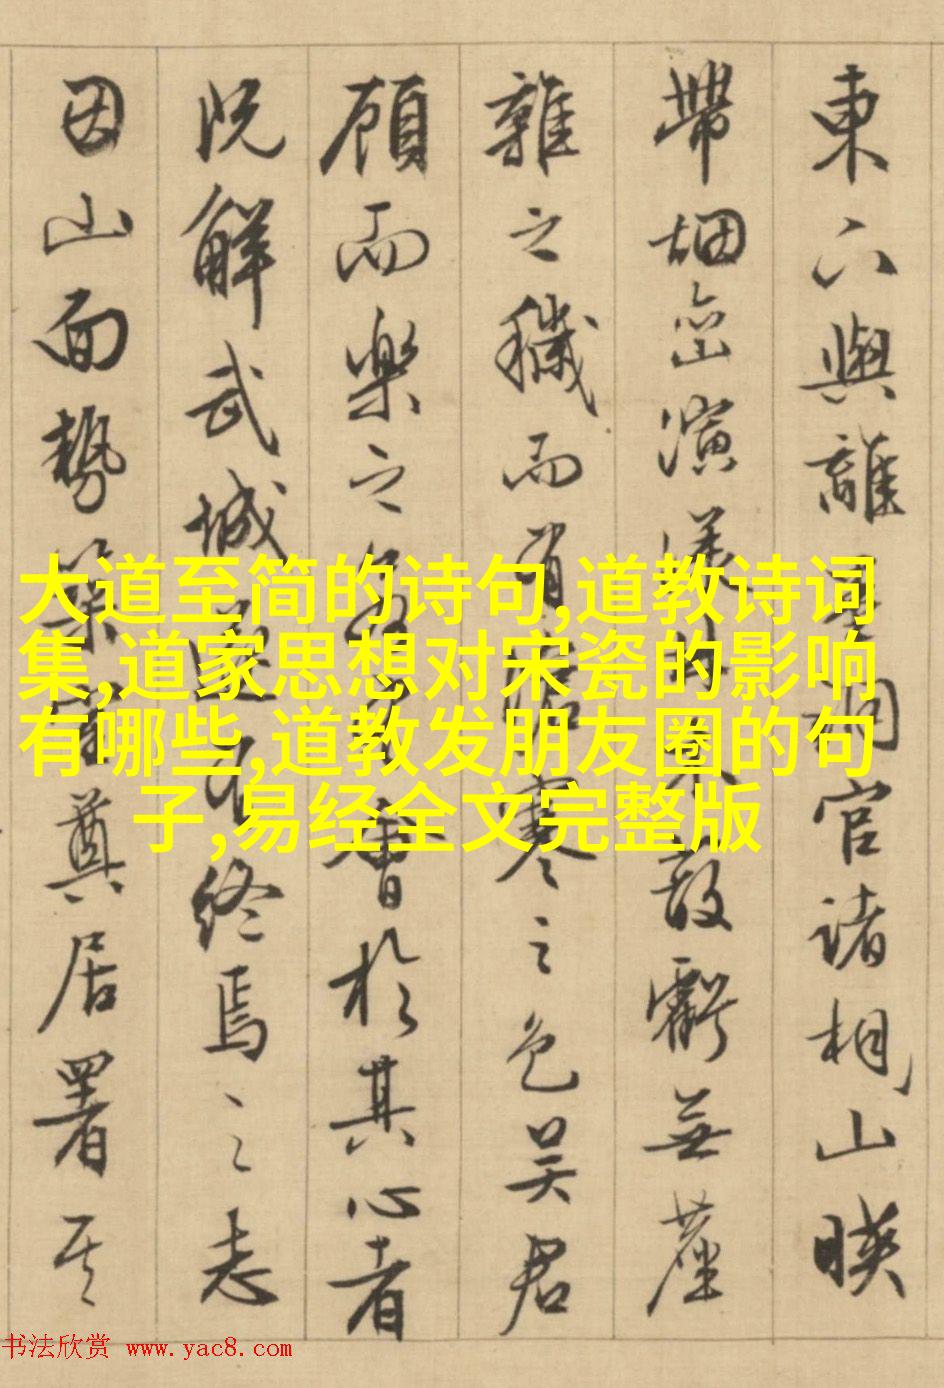 東六與離官諸相山暎
帶烟巒演漾敢虧無塵
雜之穢而有寒之色吳君
顧而樂之會於其心者
既解武城終焉之志
因山面勢築奠居署其
大道至简的诗句,道教诗词
集,道家思想对宋瓷的影响
有哪些,道教发朋友圈的句
子,易经全文完整版
书法欣赏 www.yac8.com